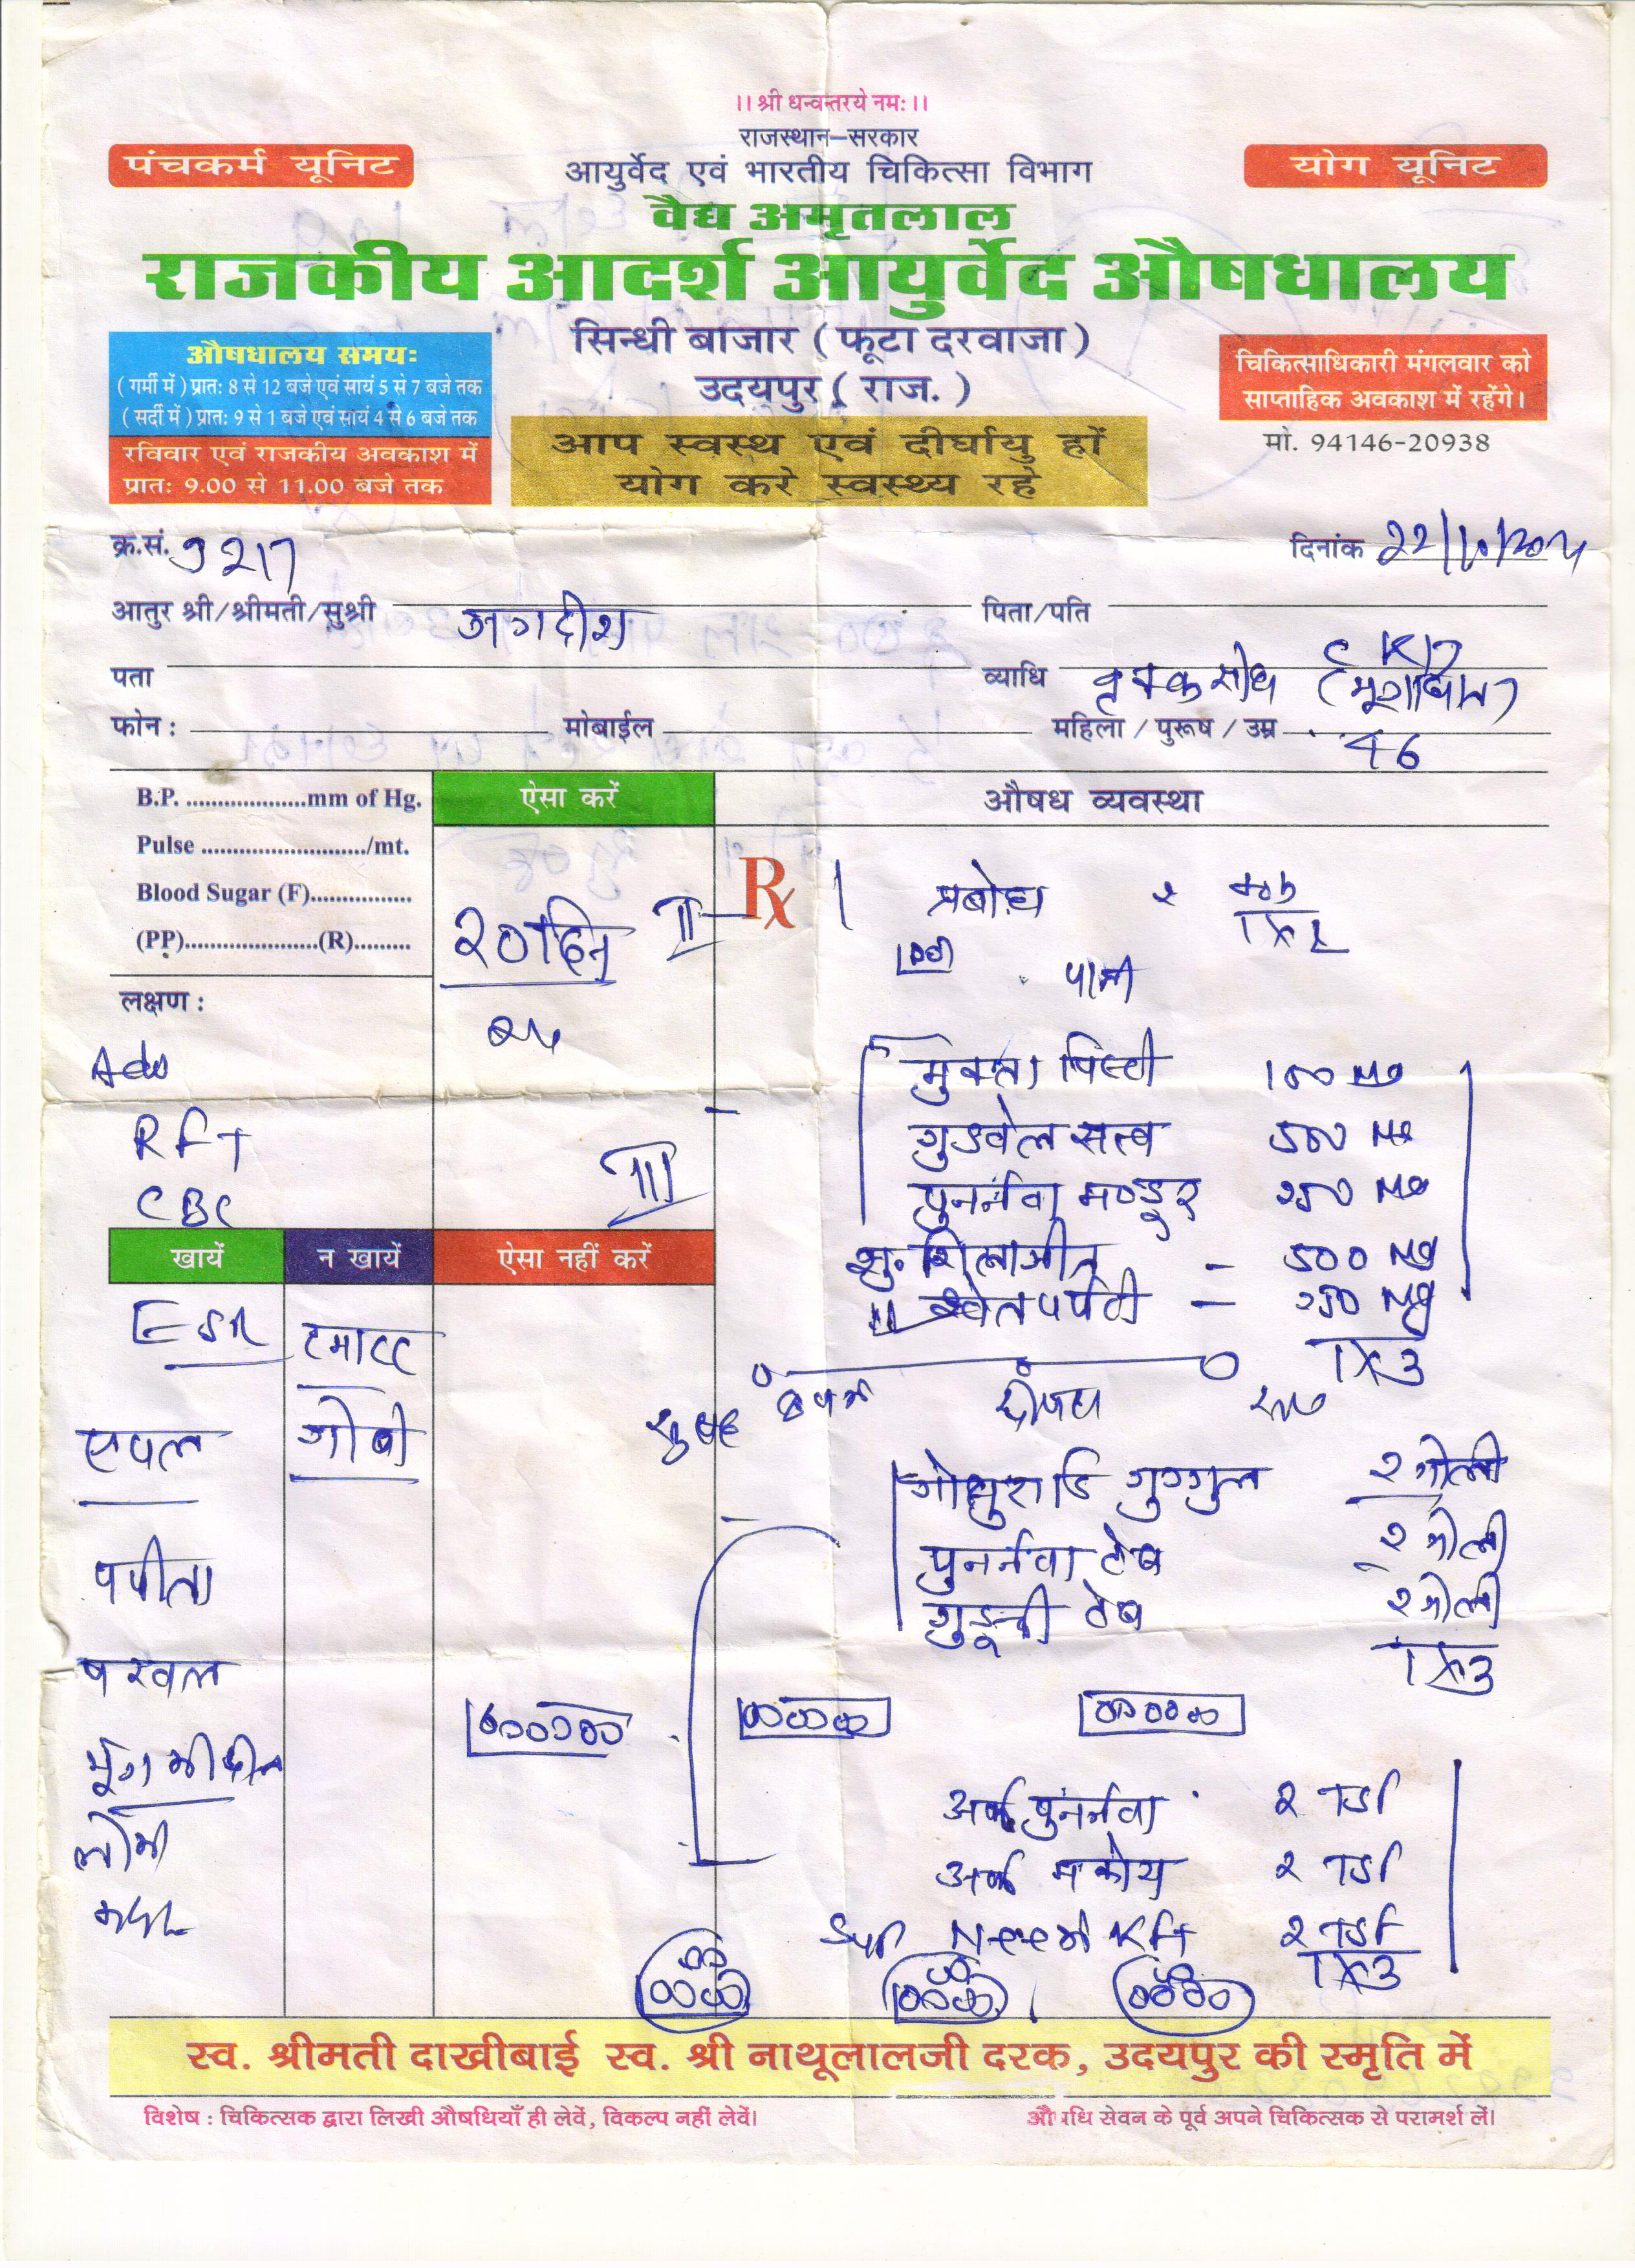 ।। श्री धन्वन्तरये नमः ।।
राजस्थान–सरकार
पंचकर्म यूनिट
आयुर्वेद एवं भारतीय चिकित्सा विभाग
योग यूनिट
वैद्य अमृतलाल
राजकीय आदर्श आयुर्वेद औषधालय
सिन्धी बाजार ( फूटा दरवाजा )
उदयपुर ( राज. )
औषधालय समयः
( गर्मी में ) प्रातः 8 से 12 बजे एवं सायं 5 से 7 बजे तक
( सर्दी में ) प्रातः 9 से 1 बजे एवं सायं 4 से 6 बजे तक
रविवार एवं राजकीय अवकाश में
प्रातः 9.00 से 11.00 बजे तक
आप स्वस्थ एवं दीर्घायु हों
योग करे स्वस्थ्य रहे
चिकित्साधिकारी मंगलवार को
साप्ताहिक अवकाश में रहेंगे।
मो. 94146-20938
क्र.सं. 3217
दिनांक
आतुर श्री/श्रीमती/सुश्री जगदीश पिता/पति
पता व्याधि वृक्क CKD
फोन : मोबाईल महिला / पुरूष / उम्र 46
B.P. ...................mm of Hg.
Pulse ........................../mt.
Blood Sugar (F)................
(PP).....................(R).........
लक्षण :
Adv
RFT
CBC
ऐसा करें
२० दिन II
III
औषध व्यवस्था
Rx
प्रबोध २
1X2
पानी
मुक्ता पिस्टी 100 Mg
गुडवेल सत्व 500 Mg
पुनर्नवा मण्डूर 250 Mg
शु. शिलाजीत – 500 Mg
श्वेत पर्पटी – 250 Mg
1X3
सुबह
गोक्षुरादि गुग्गुल २ गोली
पुनर्नवा टेब २ गोली
गुडूची टेब २ गोली
1X3
अर्क पुनर्नवा २
अर्क मकोय २
Syp Neem KFT २
1X3
खायें
न खायें
ऐसा नहीं करें
ESR
टमाटर
एपल
गोबी
पपीता
परवल
मूंग की दाल
स्व. श्रीमती दाखीबाई स्व. श्री नाथूलालजी दरक, उदयपुर की स्मृति में
विशेष : चिकित्सक द्वारा लिखी औषधियाँ ही लेवें, विकल्प नहीं लेवें।
औषधि सेवन के पूर्व अपने चिकित्सक से परामर्श लें।